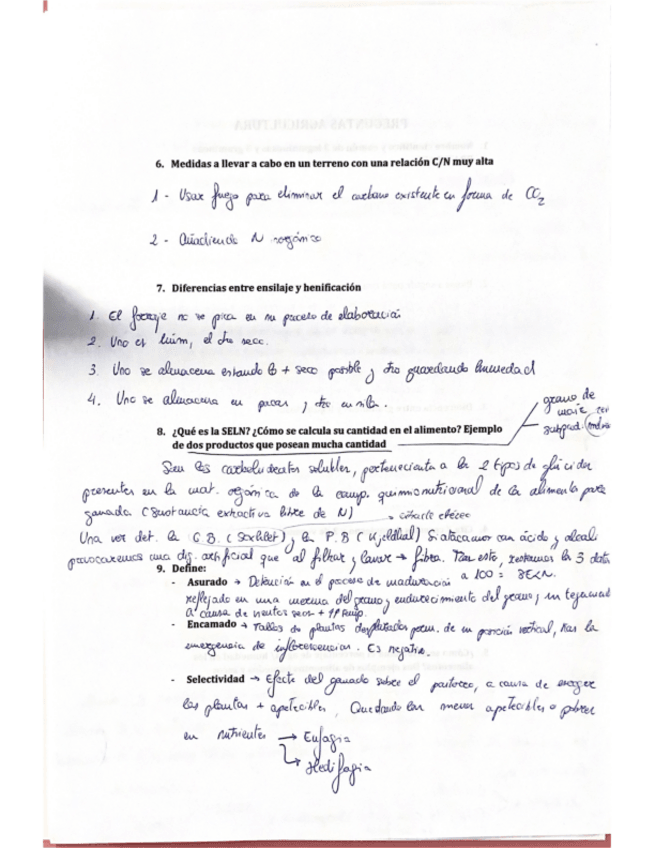 6. Medidas a llevar a cabo en un terreno con una relación C/N muy alta
1 - Usar fuego para eliminar el carbono existente en forma de CO2
2 - Añadiendo N orgánico
7. Diferencias entre ensilaje y henificación
1. El forraje no se pica en su proceso de elaboración
2. Uno es húm, el otro seco.
3. Uno se almacena estando lo + seco posible y otro guardando humedad
4. Uno se almacena en pacas y otro en silo.
grano de
maíz
subprod.
8. ¿Qué es la SELN? ¿Cómo se calcula su cantidad en el alimento? Ejemplo
de dos productos que posean mucha cantidad
Son los carbohidratos solubles, pertenecientes a los 2 tipos de glúcidos
presentes en la mat. orgánica de la comp. quimionutricional de los alimentos para
ganado (sustancia extractiva libre de N)
Una vez det. la G.B. (Soxhlet) y la P.B (Kjeldhal) Si atacamos con ácido y álcali
provocaremos una dig. artificial que al filtrar y lavar → fibra. Tras esto, restamos los 3 datos
a 100 = SELN.
9. Define:
- Asurado → Detención en el proceso de maduración
reflejado en una merma del grano y endurecimiento del grano y un tegumento
a causa de vientos secos + ↑↑ temp.
- Encamado → Tallos de plantas desplazados perm. de su posición vertical, tras la
emergencia de inflorescencias. Es negativo.
- Selectividad → Efecto del ganado sobre el pastoreo, a causa de escoger
las plantas + apetecibles, Quedando las menos apetecibles o pobres
en nutrientes → Eufagia
↳ Hedifagia